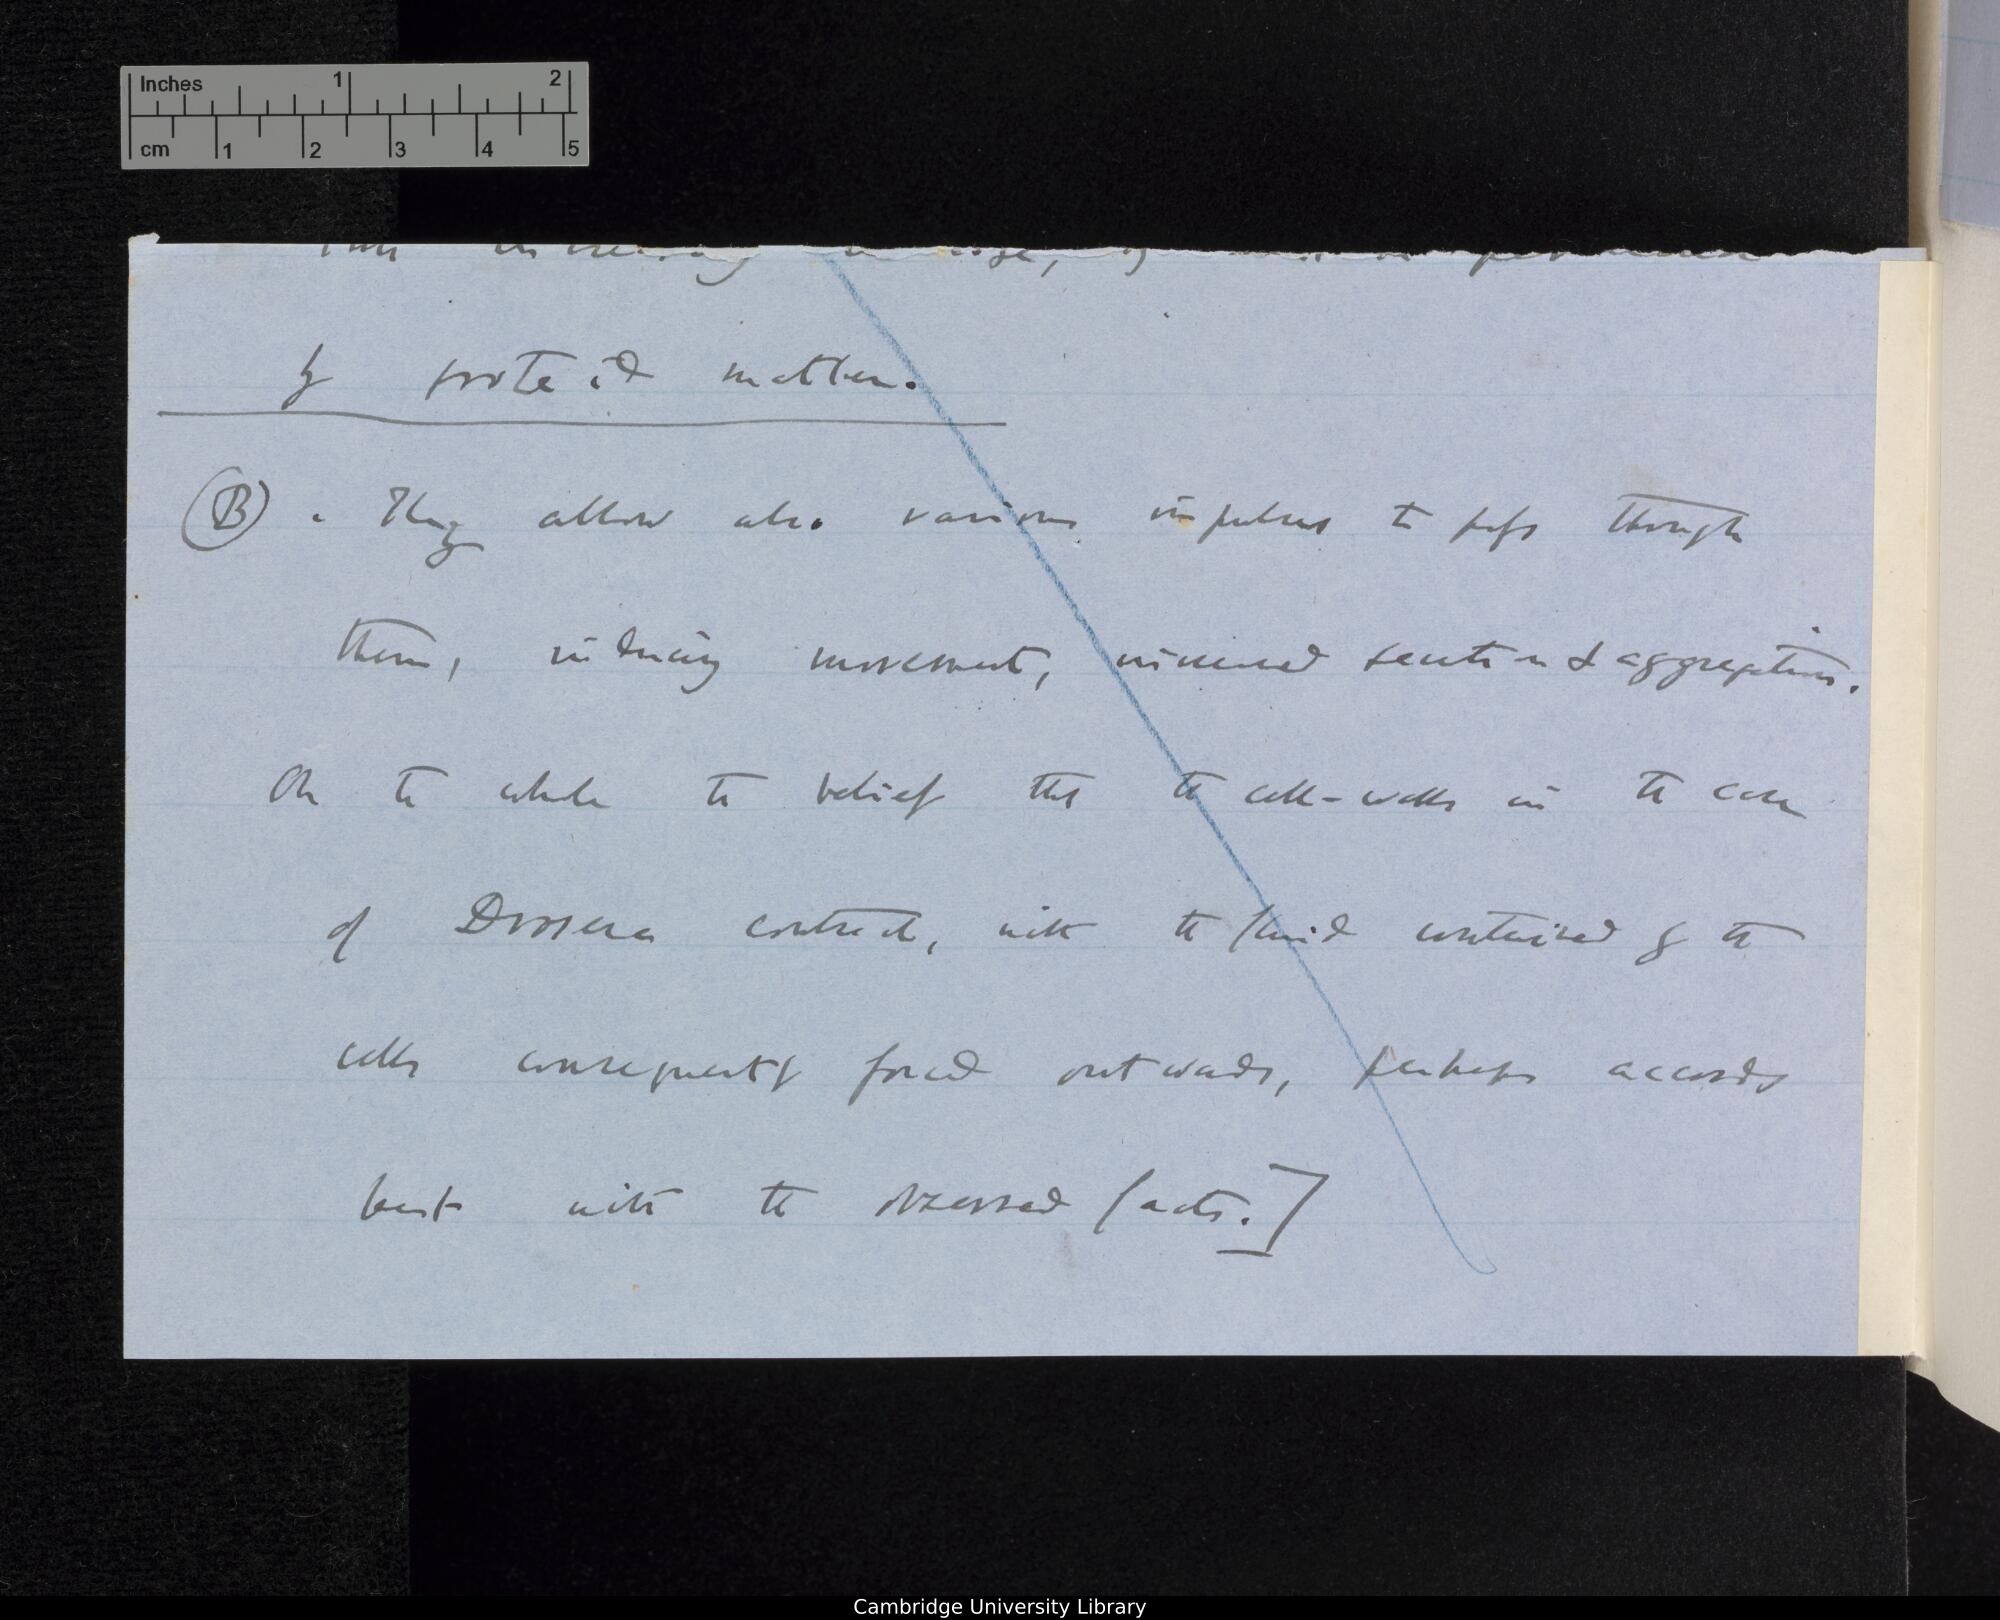 Inches 1 2
cm 1 2 3 4 5
by proteid matter.
(B) . They allow also various impulses to pass through
them, inducing movement, increased secretion & aggregation.
On the whole the belief that the cell-walls in the case
of Drosera contract, with the fluid contained by the
cells consequently forced outwards, perhaps accords
best with the observed facts.]
Cambridge University Library